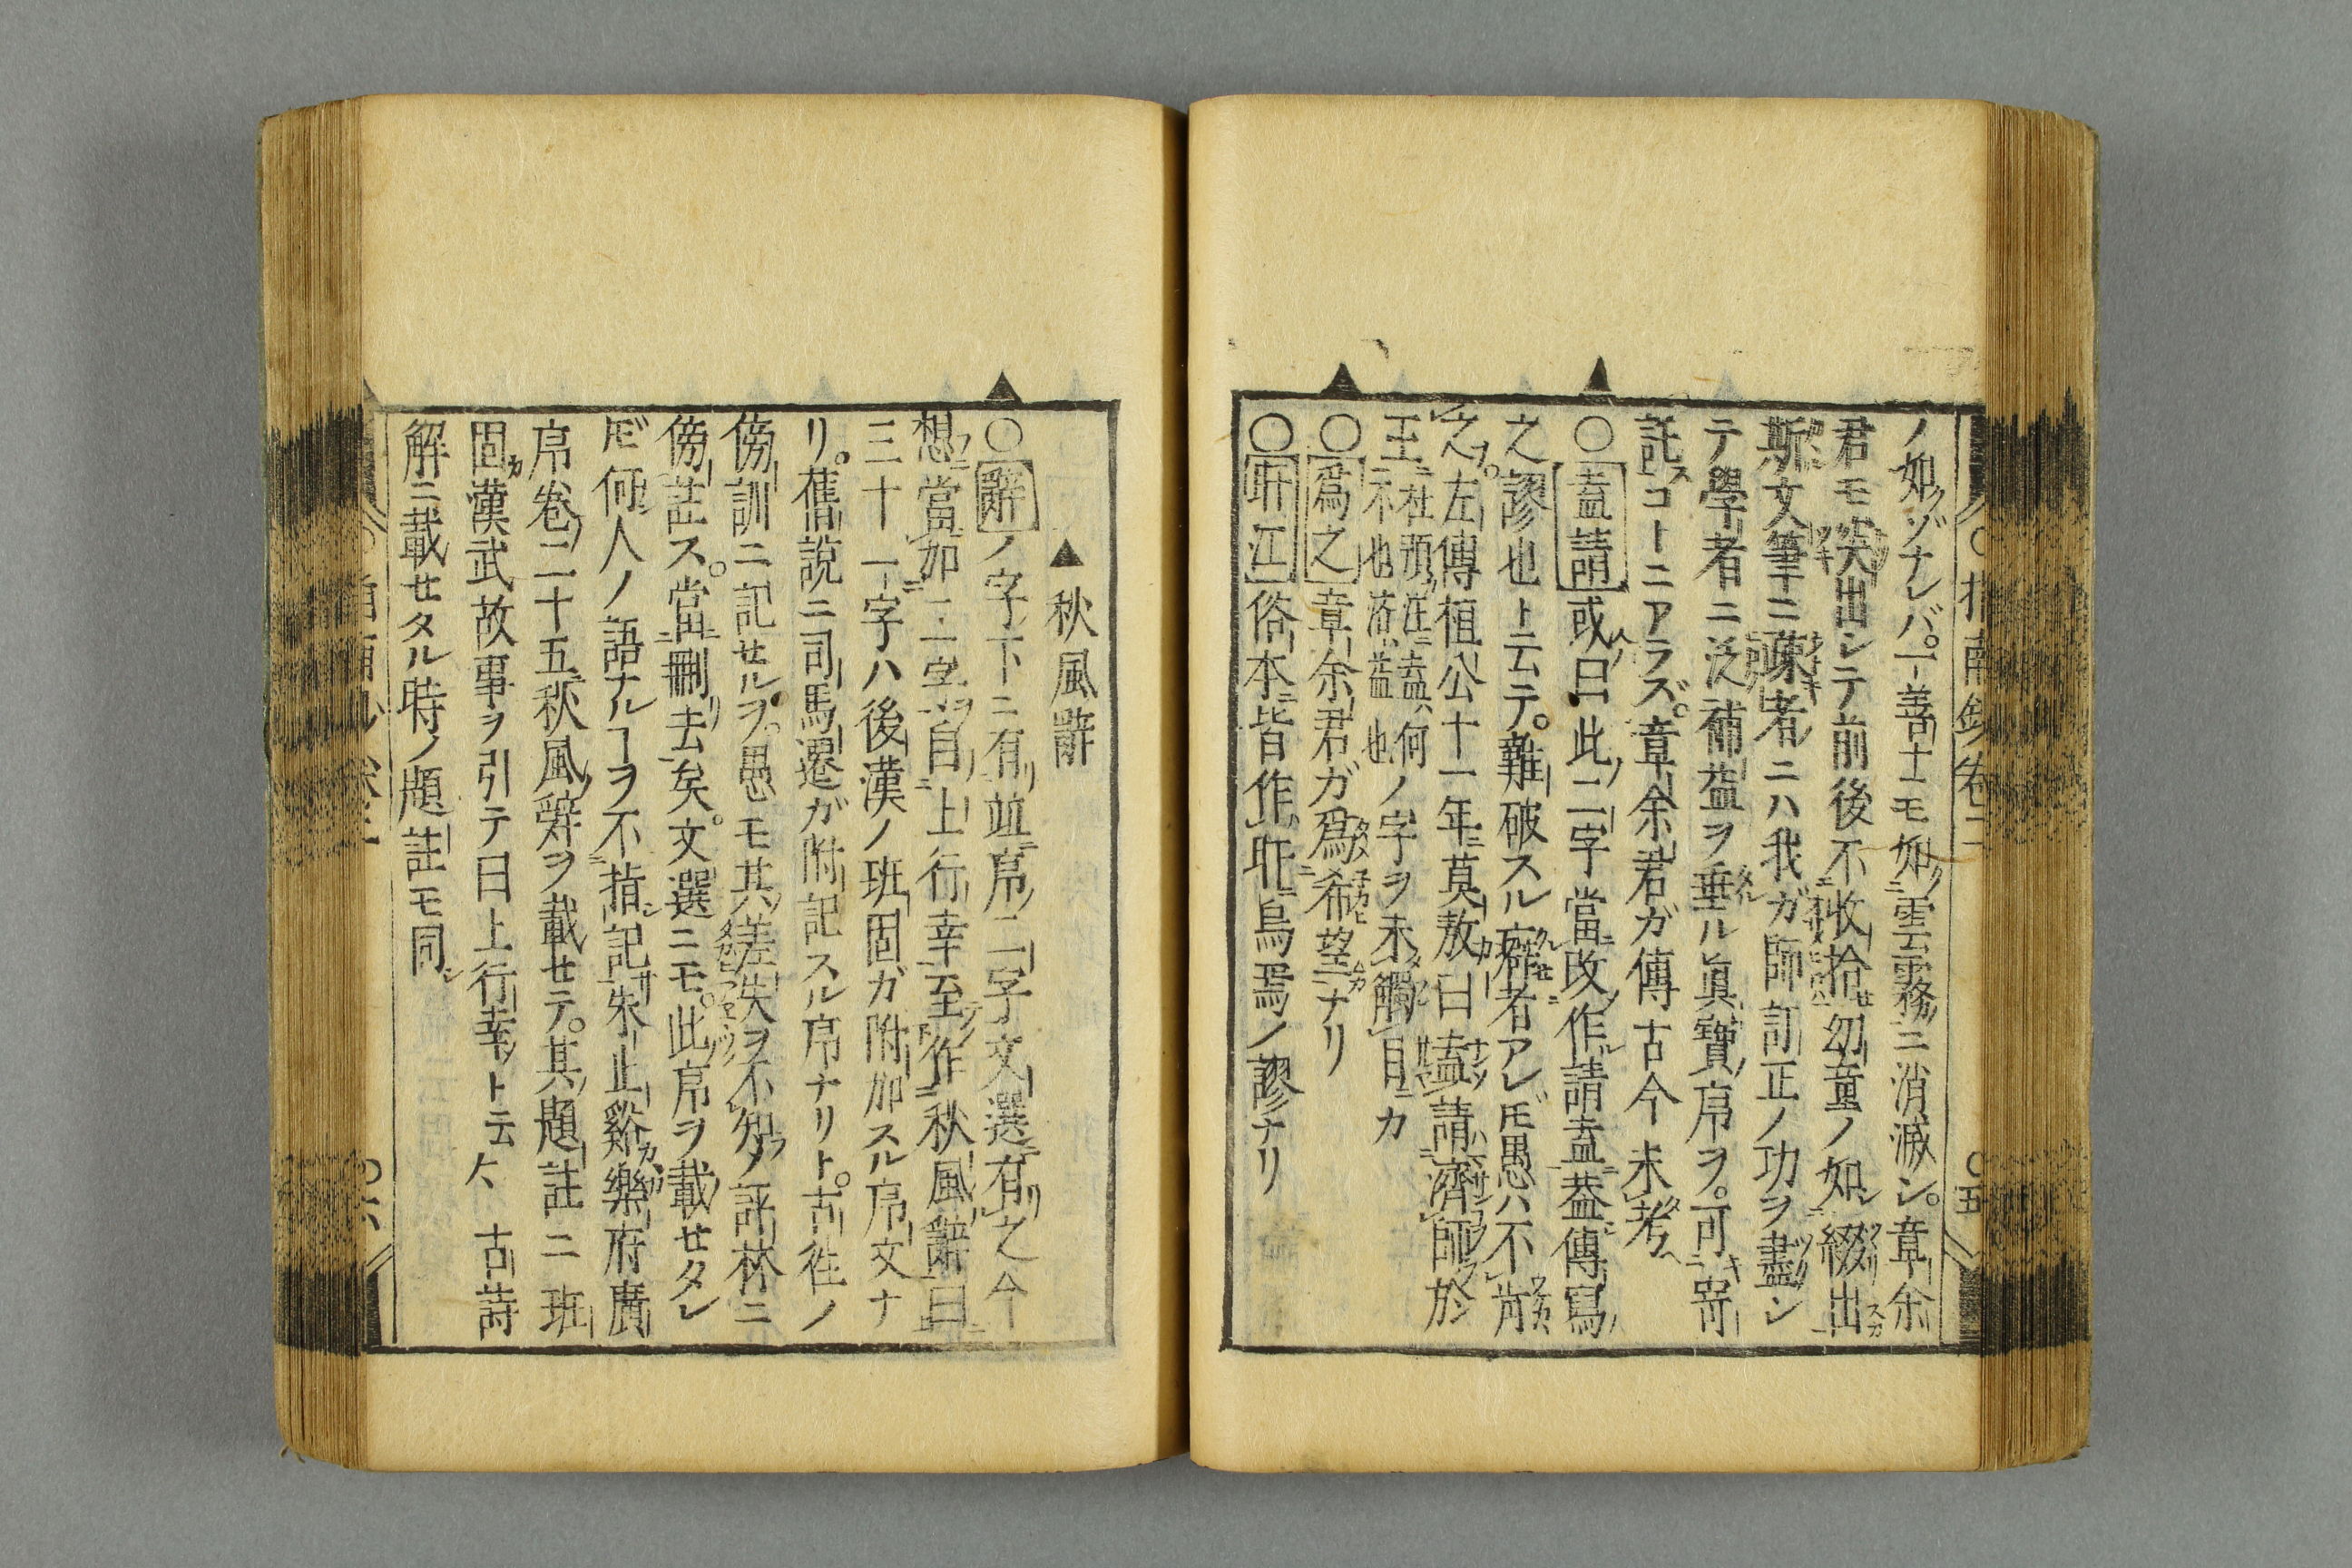 ノ如ゾナレバ一善士モ如雲霧ニ消滅シ。章余
君モ突出シテ前後不收拾幼童ノ如綴出
斯文筆ニ疎者ニハ我ガ師訂正ノ功ヲ盡シ
テ學者ニ泛補益ヲ垂ル眞寶ノ序ヲ。可寄
託コトニアラズ。章余君ガ傳古今未考
〇蓋請或曰此ノ二字當改作請盍蓋傳寫
之謬也ト云テ。難破スル癖者アレ𪜈愚ハ不肯
之。左傳桓公十一年莫敖曰盍請濟師於
王杜預注盍何不也済益也ノ字ヲ未觸目カ
〇爲之章余君ガ爲希望ナリ
〇旴江俗本皆作旺烏焉ノ謬ナリ
〇指南鈔卷二
〇五
▲秋風辭
〇辭ノ字下ニ有並序ノ二字文選有之今
想當加二字自上行幸至作秋風辭曰
三十一字ハ後漢ノ班固ガ附加スル序文ナ
リ。舊說ニ司馬遷ガ附記スル序ナリト。古徃ノ
傍訓ニ記セルヲ。愚モ其差失ヲ不知ノ評林ニ
傍註ス。當刪去矣。文選ニモ。此序ヲ載セタレ
𪜈何人ノ語ナルヿヲ不指記朱止谿樂府廣
序卷二十五秋風辭ヲ載セテ。其題註ニ班
固漢武故事ヲ引テ曰上行幸ト云〻古詩
解ニ載セタル時ノ題註モ同